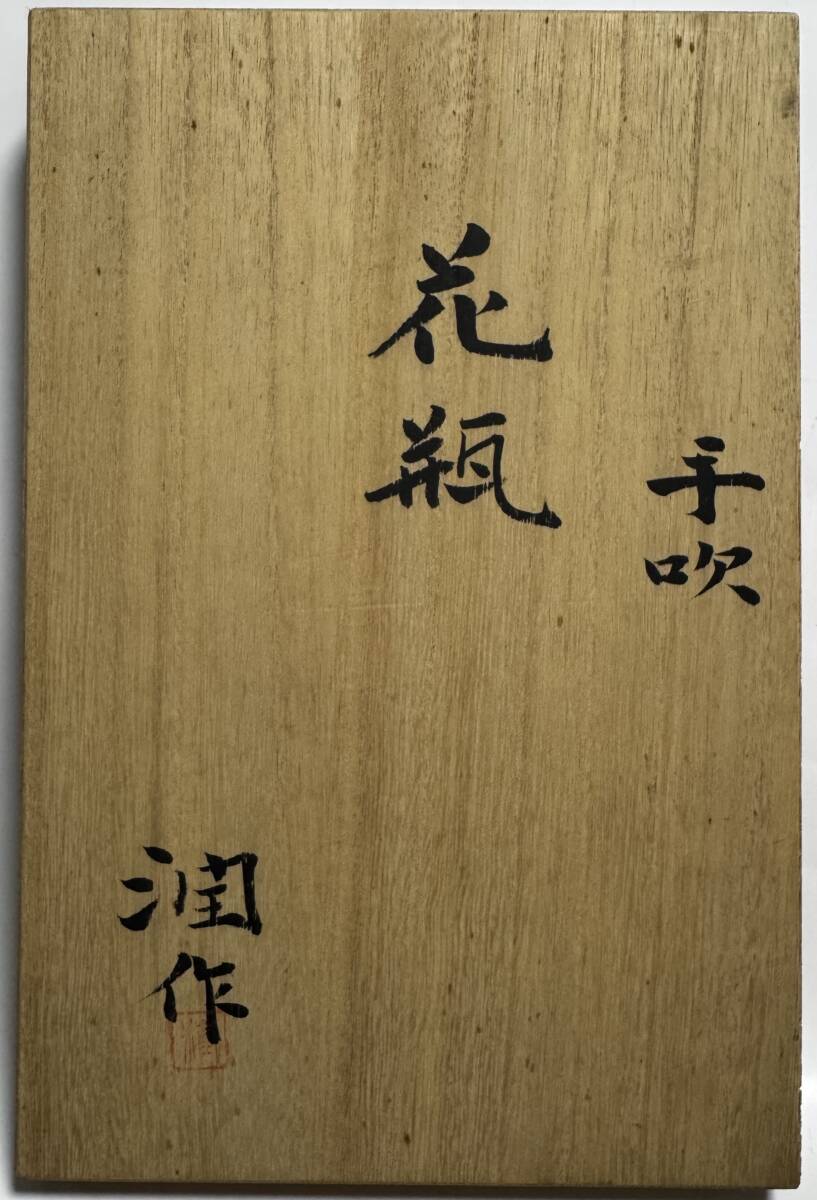 手吹
花瓶
潤作